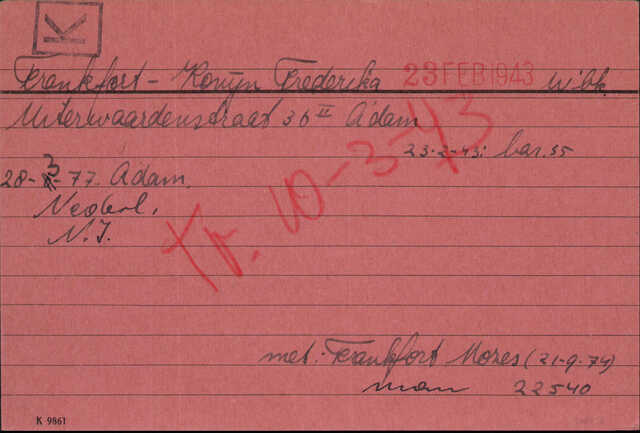 K
Frankfort - Konijn Frederika 23 FEB 1943 Wbk.
Uiterwaardenstraat 36 II A'dam
23-2-43: bar. 55
28-3-77. Adam.
Nederl.
N.I.
Tr. 10-3-43
met: Frankfort Mozes (21-9-74)
man 22540
K 9861